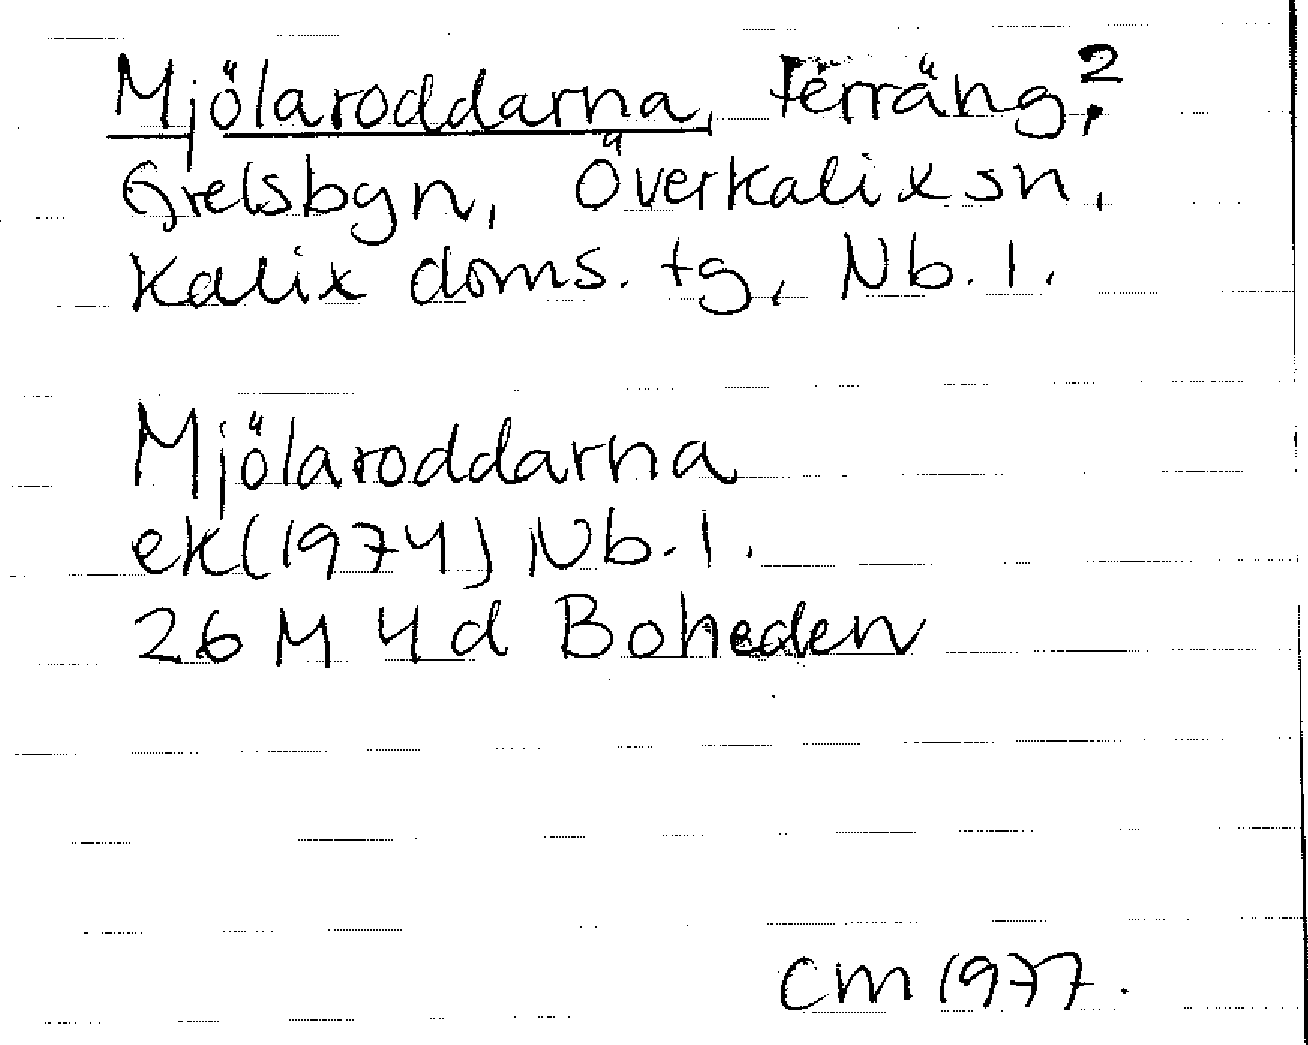 Mjölaroddarna, Terräng?,
Grelsbyn, Överkalix sn,
Kalix doms. tg, Nb. l.
Mjölaroddarna
ek (1974) Nb. l.
26 M 4d Boheden
CM 1977.